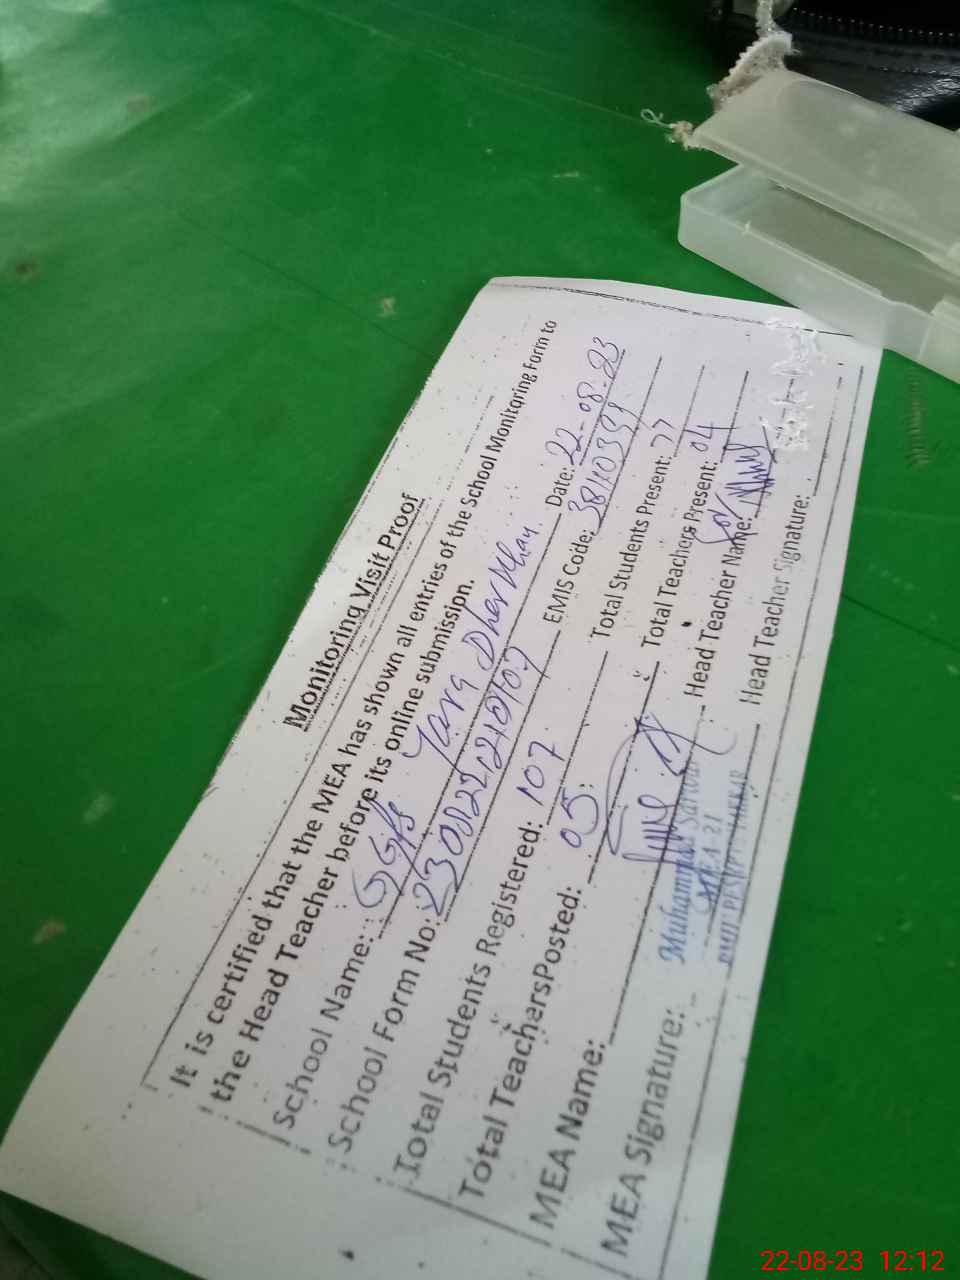 Monitoring Visit Proof
It is certified that the MEA has shown all entries of the School Monitoring Form to
the Head Teacher before its online submission.
School Name: GGPS Date: 22-08-23
School Form No: EMIS Code:
Total Students Registered: 107 Total Students Present: 77
Total TeachersPosted: 05 Total Teachers Present: 04
MEA Name: Head Teacher Name:
MEA Signature: Muhammad Sarwar Head Teacher Signature:
MEA 21
22-08-23 12:12